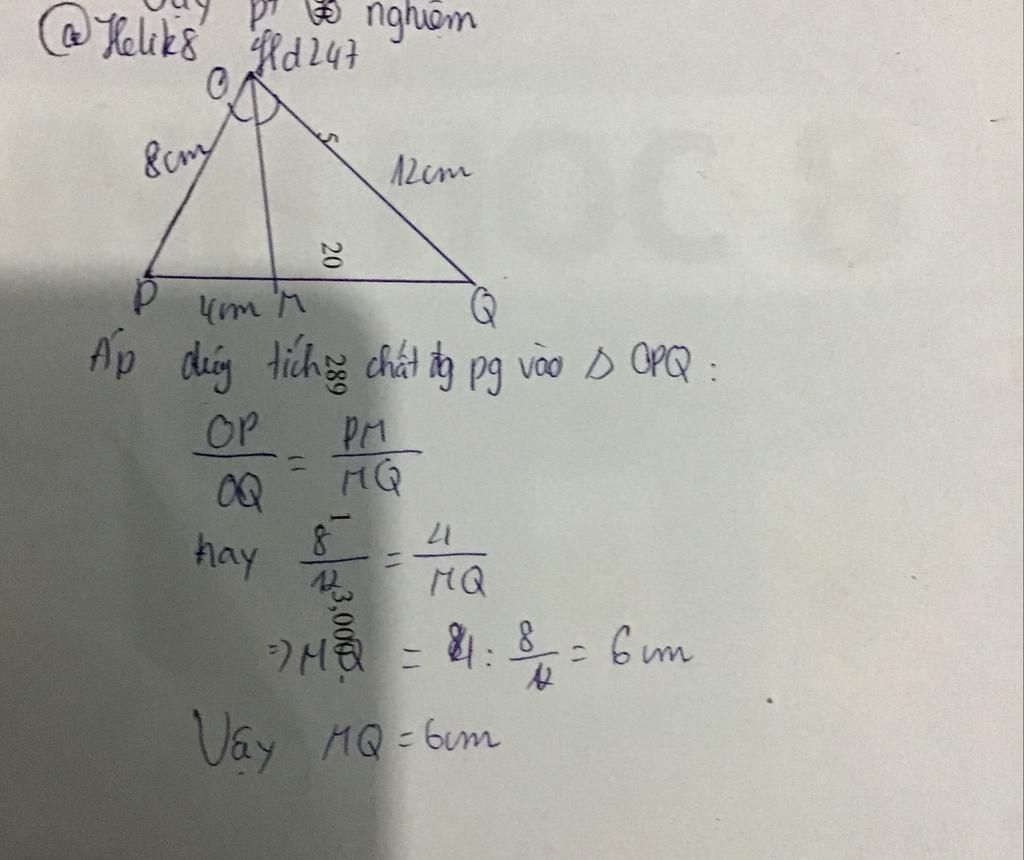 Vậy pt vô nghiệm
@Helik8 Hd247
O
8cm
5
12cm
20
P 4cm M Q
Áp dụng tích 289 chất đg pg vào Δ OPQ :
OP/OQ = PM/MQ
1
hay 8/12 = 4/MQ
3,000.
=> MQ = 4 : 8/12 = 6cm
Vậy MQ = 6cm